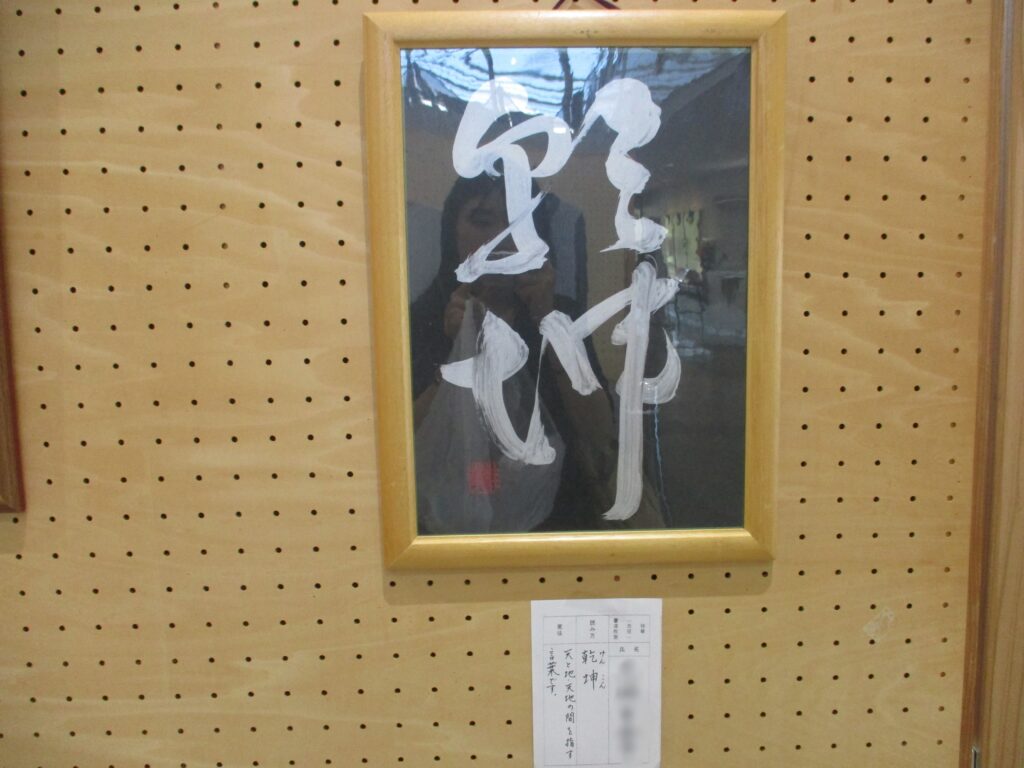 乾坤
氏名
読み方
けんこん
乾坤
意味
天と地・天地の間を指す
言葉です。